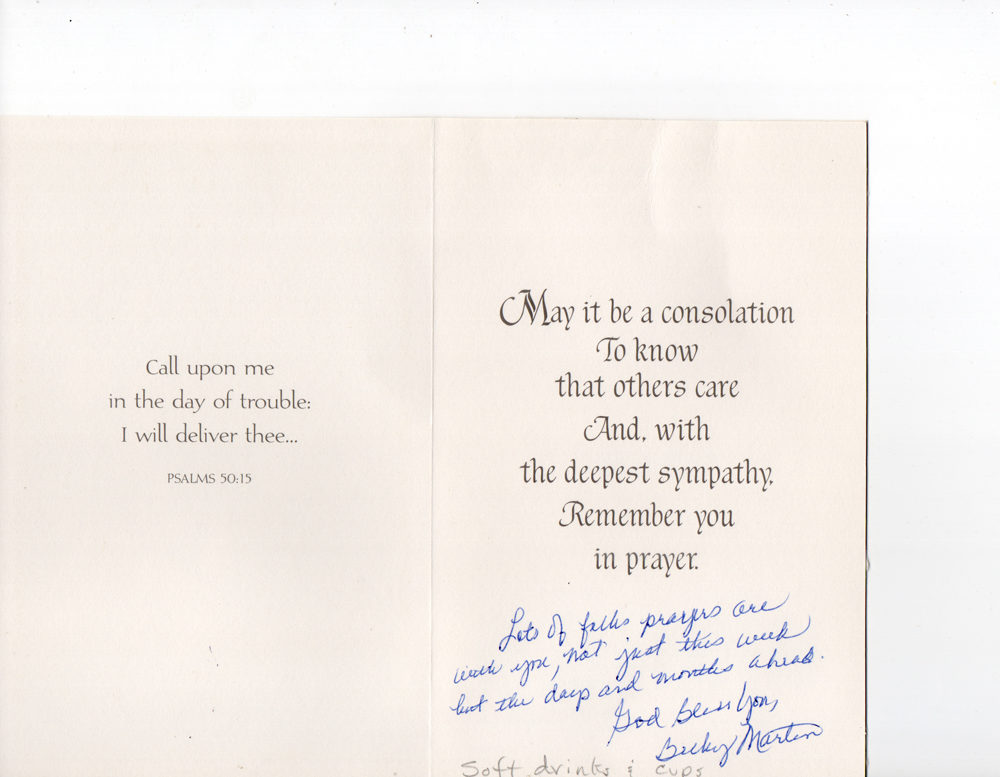 Call upon me
in the day of trouble:
I will deliver thee...
PSALMS 50:15
May it be a consolation
To know
that others care
And, with
the deepest sympathy,
Remember you
in prayer.
Lots of folks prayers are
with you, not just this week
but the days and months ahead.
God Bless You,
Becky Martin
Soft drinks & cups